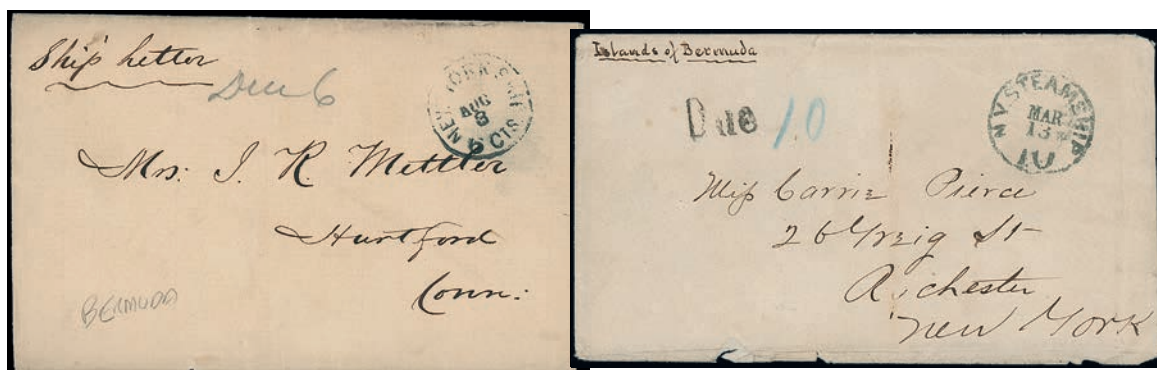 Ship Letter
Due 6
NEW YORK SHIP
AUG
8
6 CTS
Mrs. J. R. Mettler
Hartford
Conn:
BERMUDA
Islands of Bermuda
Due 10
N.Y. STEAMSHIP
MAR
13
10
Miss Carrie Pierce
26 Greig St
Rochester
New York